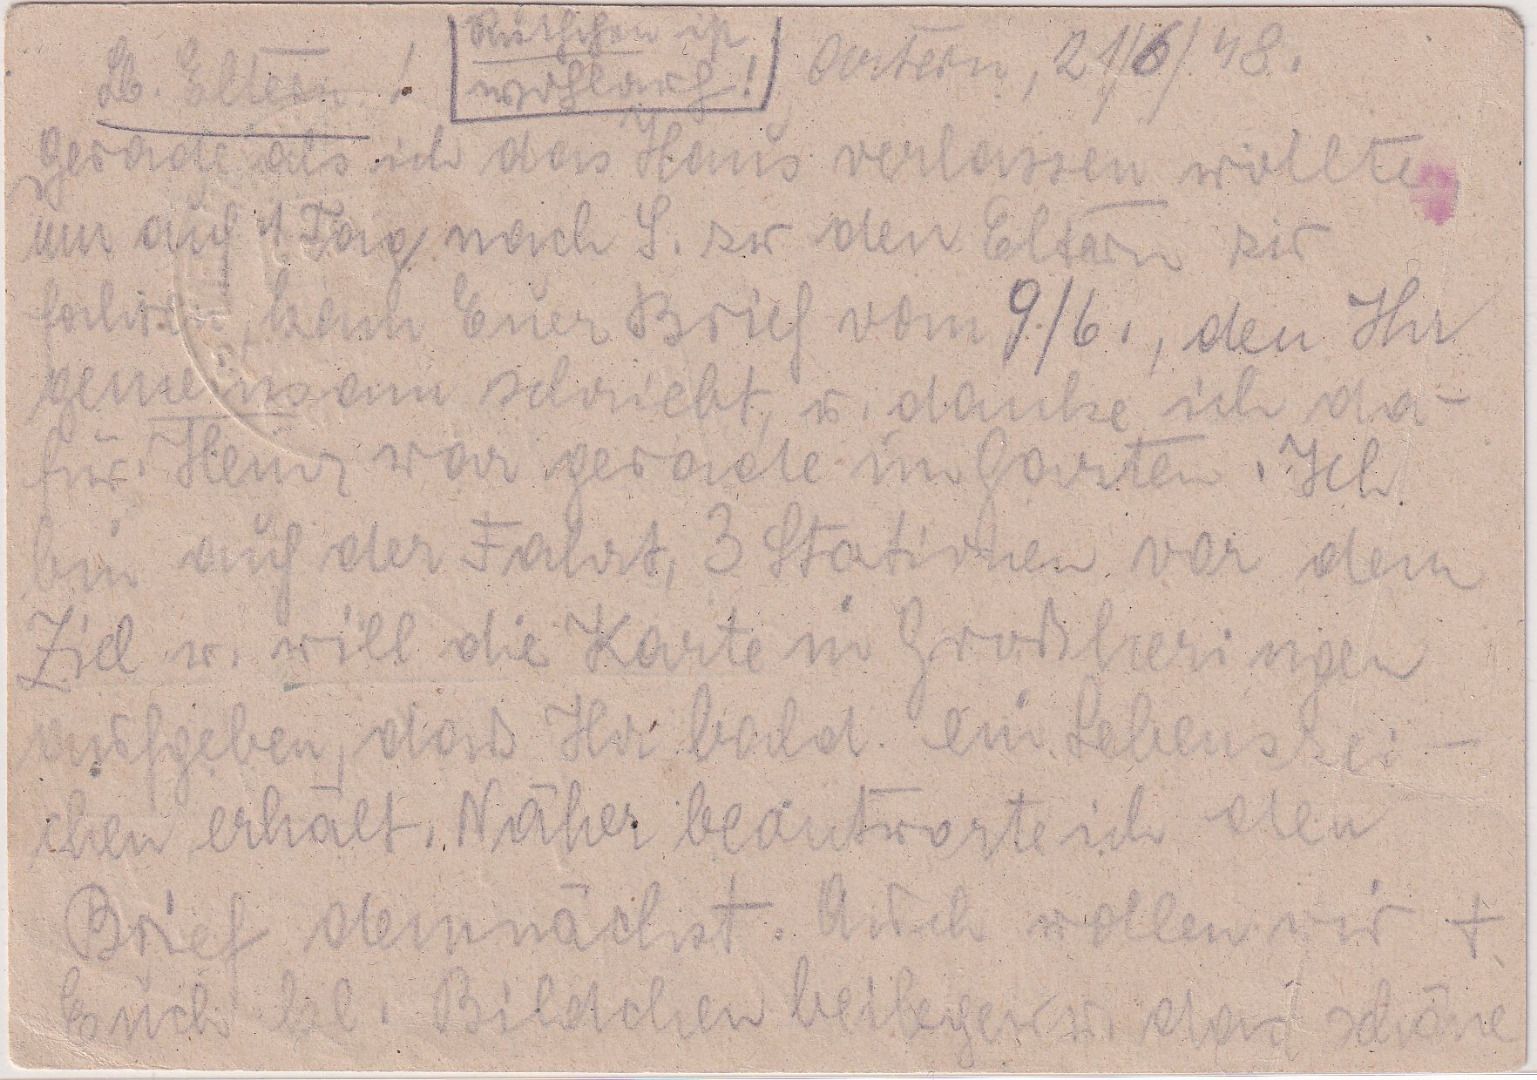 Lb. Eltern! Ruthchen ist Artern, 21/6/48.
wohlauf!
gerade als ich das Haus verlassen wollte
um auf 1 Tag nach S. zu den Eltern zu
fahren, kam Euer Brief vom 9./6., den Ihr
gemeinsam schriebt, u. danke ich da-
für. Heinz war gerade im Garten. Ich
bin auf der Fahrt, 3 Stationen vor dem
Ziel u. will die Karte in Großheringen
aufgeben, daß Ihr bald ein Lebenszei-
chen erhält. Näher beantworte ich den
Brief demnächst. Auch wollen wir +
Euch kl. Bildchen beilegen u. das schöne